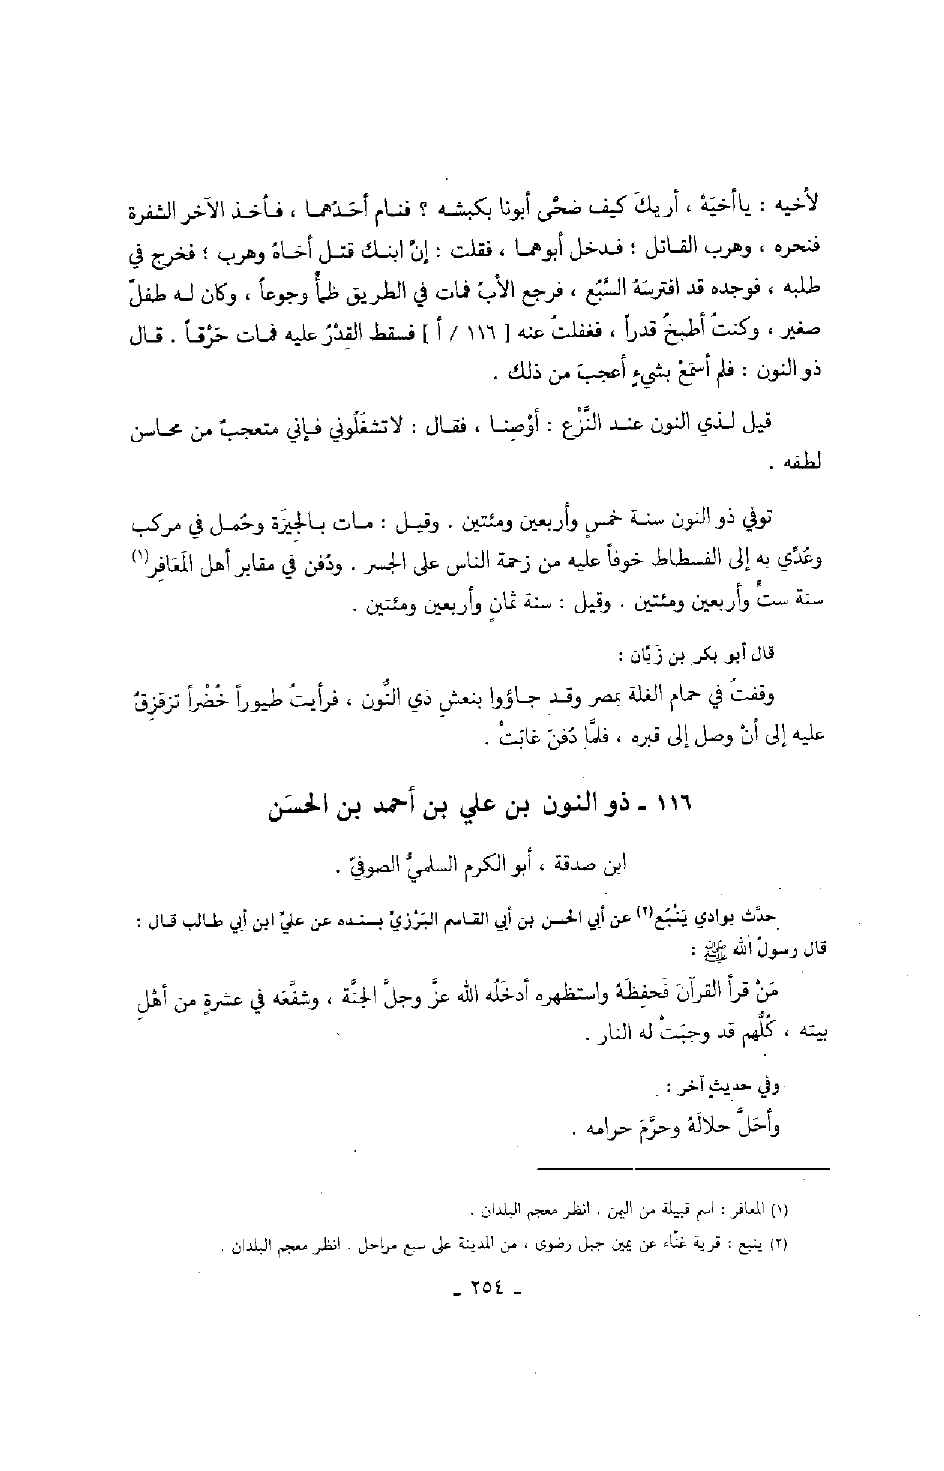 لأخيه : ياأخيَّهْ ، أريكَ كيف ضحَّى أبونا بكبشه ؟ فنام أحَدُهما ، فأخذ الآخر الشفرة
فنحره ، وهرب القاتل ؛ فدخل أبوهما ، فقلت : إنّ ابنك قتل أخاهُ وهرب ؛ فخرج في
طلبه ، فوجده قد افترسَهُ السَّبُع ، فرجع الأبُ فمات في الطريق ظمأً وجوعاً ، وكان له طفلٌ
صغير ، وكنتُ أطبخُ قدراً ، فغفلتُ عنه [ ١١٦ / أ ] فسقط القِدْرُ عليه فمات حَرْقاً . قال
ذو النون : فلم أسمَعْ بشيءٍ أعجبَ من ذلك .
قيل لذي النون عند النَّزْع : أوْصِنا ، فقال : لاتشغَلُوني فإني متعجبٌ من محاسن
لطفه .
توفي ذو النون سنة خمسٍ وأربعين ومئتين . وقيل : مات بالجيزَة وحُمل في مركب
وعُدِّي به إلى الفسطاط خوفاً عليه من زحمة الناس على الجسر . ودُفن في مقابر أهل المَعَافِر(١)
سنة ستٍّ وأربعين ومئتين . وقيل : سنة ثمانٍ وأربعين ومئتين .
قال أبو بكر بن زبّان :
وقفتُ في حمام الغلة بمصر وقد جاؤوا بنعشِ ذي النُّون ، فرأيتُ طيوراً خُضْراً تزقزِقُ
عليه إلى أنْ وصل إلى قبره ، فلمَّا دُفنَ غابَتْ .
١١٦ ـ ذو النون بن علي بن أحمد بن الحسَن
ابن صدقة ، أبو الكرم السلميُّ الصوفيّ .
حدَّث بوادي يَنْبُع(٢) عن أبي الحسن بن أبي القاسم البَرْزيّ بسنده عن عليّ ابن أبي طالب قال :
قال رسولُ الله ﷺ :
مَنْ قرأَ القرآنَ فحفِظَهُ واستظهره أدخلَه الله عزَّ وجلَّ الجنَّة ، وشفَّعَه في عشرةٍ من أهْلِ
بيته ، كُلُّهم قد وجبَتْ له النار .
وفي حديثٍ آخر :
وأحَلَّ حلالَهُ وحرَّمَ حرامه .
(١) المعافر : اسم قبيلة من اليمن . انظر معجم البلدان .
(٢) ينبع : قرية غنّاء عن يمين جبل رضوى ، من المدينة على سبع مراحل . انظر معجم البلدان .
ـ ٢٥٤ ـ